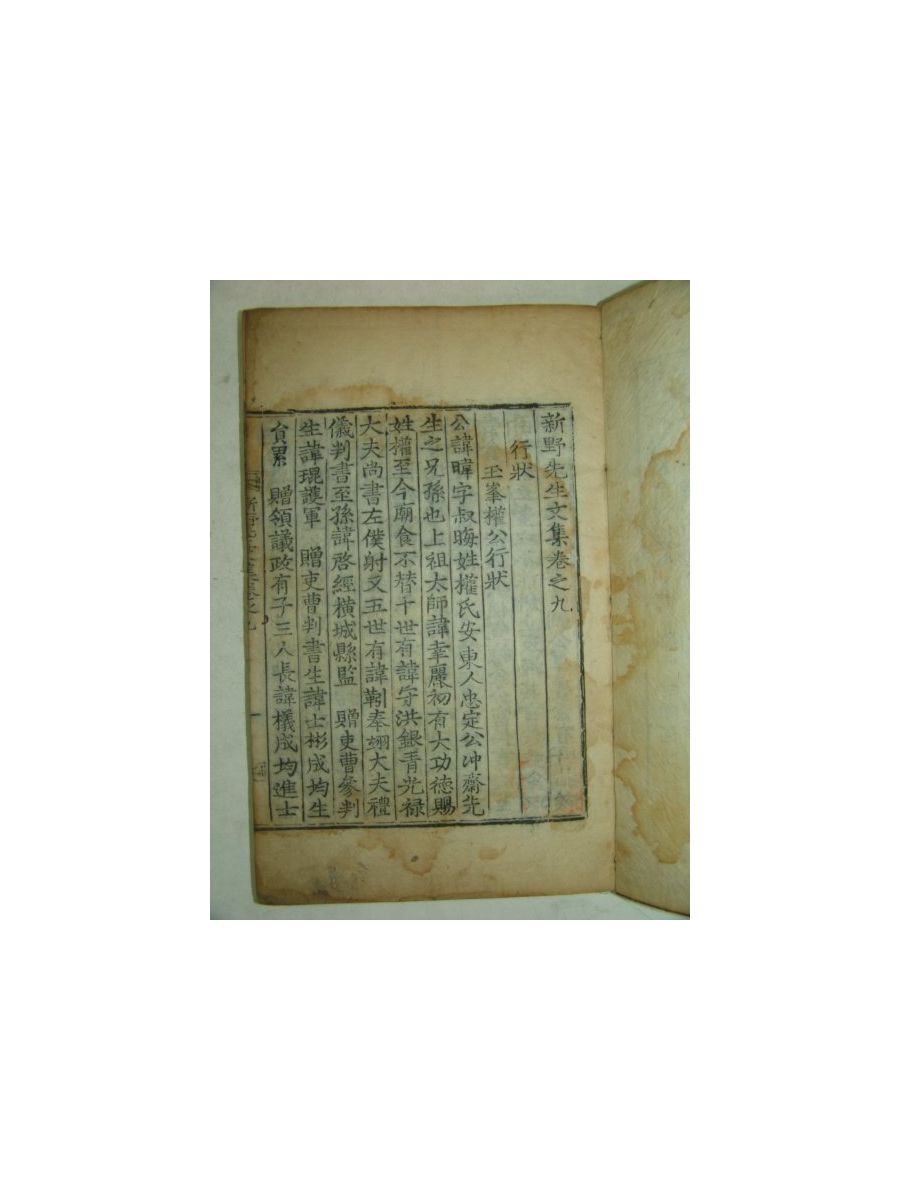 新野先生文集卷之九
行狀
玉峯權公行狀
公諱暐字叔晦姓權氏安東人忠定公冲齋先
生之兄孫也上祖太師諱幸麗初有大功德賜
姓權至今廟食不替十世有諱守洪銀青光禄
大夫尚書左僕射又五世有諱靷奉翊大夫禮
儀判書至孫諱啓經橫城縣監 贈吏曹參判
生諱琨護軍 贈吏曹判書生諱士彬成均生
負累 贈領議政有子三人長諱檥成均進士